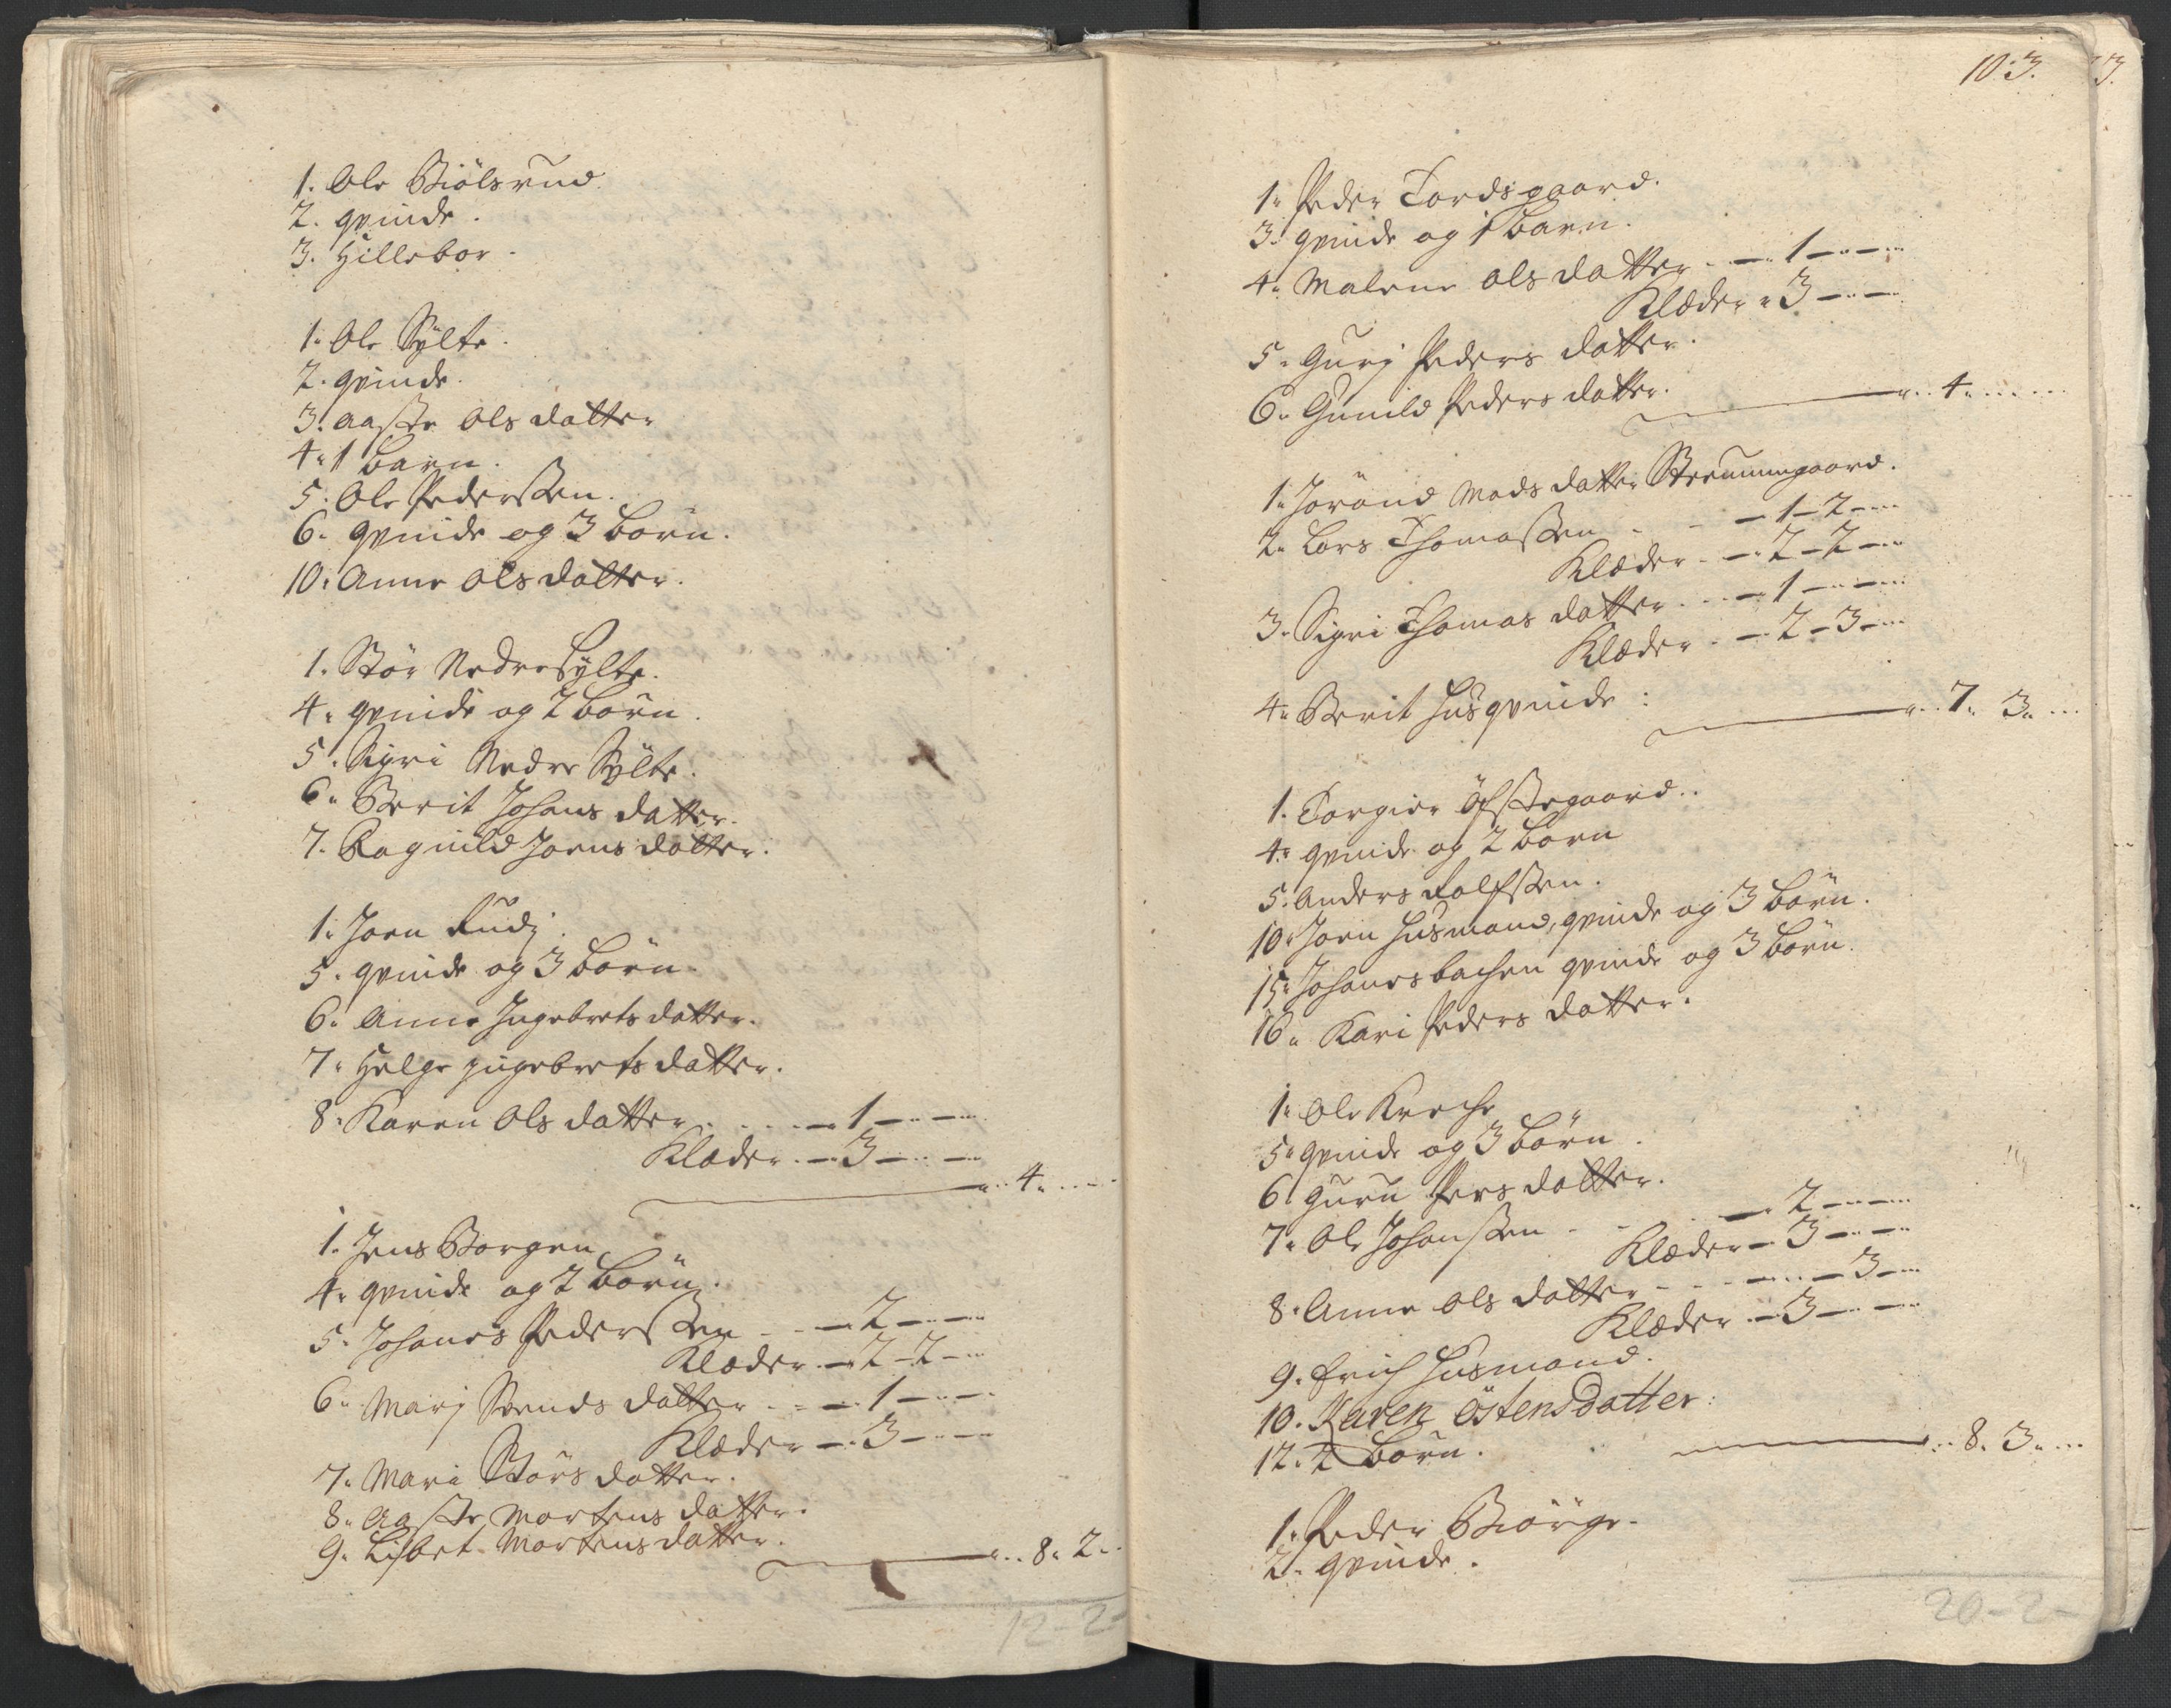 1. Ole Biölsrud
2. qvinde.
3. Hillebor.
1. Ole Sylte.
2. qvinde.
3. Aaste Ols datter
4. 1 barn.
5. Ole Pederssen.
6. qvinde og 3 börn.
10. Anne Ols datter.
1. Stör Nedre Sylte.
4. qvinde og 2 börn.
5. Sigri Nedre Sylte.
6. Berit Johans datter.
7. Ragnild Joens datter.
1. Joen Rudj
5. qvinde og 3 börn.
6. Anne Ingebrets datter.
7. Helge ingebrets datter.
8. Karen Ols datter . . . — 1 — —
Klæder — 3 — —
4.
1. Jens Borgen
4. qvinde og 2 börn.
5. Johanes Pederssen - - — 2 — —
Klæder — 2 - 2 —
6. Marj Svends datter - - — 1 — —
Klæder — 3 — —
7. Mari Störs datter.
8. Aaste Mortens datter.
9. Lisbet Mortens datter.
8. 2.
12-2-
103.
3.
1. Peder Tordsgaard.
3. qvinde og 1 barn.
4. Malene Ols datter — 1 — —
Klæder 3 — —
5. Gurj Peders datter.
6. Gunild Peders datter.
4.
1. Jorand Mads datter
2. Lars Thomassen - - — 1 - 2 —
Klæder — 2 - 2 —
3. Sigri Thomas datter — 1 — —
Klæder — 2 - 3 —
4. Berit Husqvinde :
7. 3.
1. Torgier Öfstegaard.
4. qvinde og 2 börn
5. Anders Rolfssen.
10. Joen Husmand, qvinde og 3 börn.
15. Johanes bachen qvinde og 3 börn.
16. Kari Peders datter.
1. Ole
5. qvinde og 3 börn.
6. Guru Pers datter.
7. Ole Johanssen - - — 2 — —
Klæder — 3 — —
8. Anne Ols datter - - - — — 3 —
Klæder — 3 — —
9. Erich Husmand.
10. Karen Östensdatter:
12. 2 börn.
8. 3.
1. Peder Biörge.
2. qvinde.
20-2-